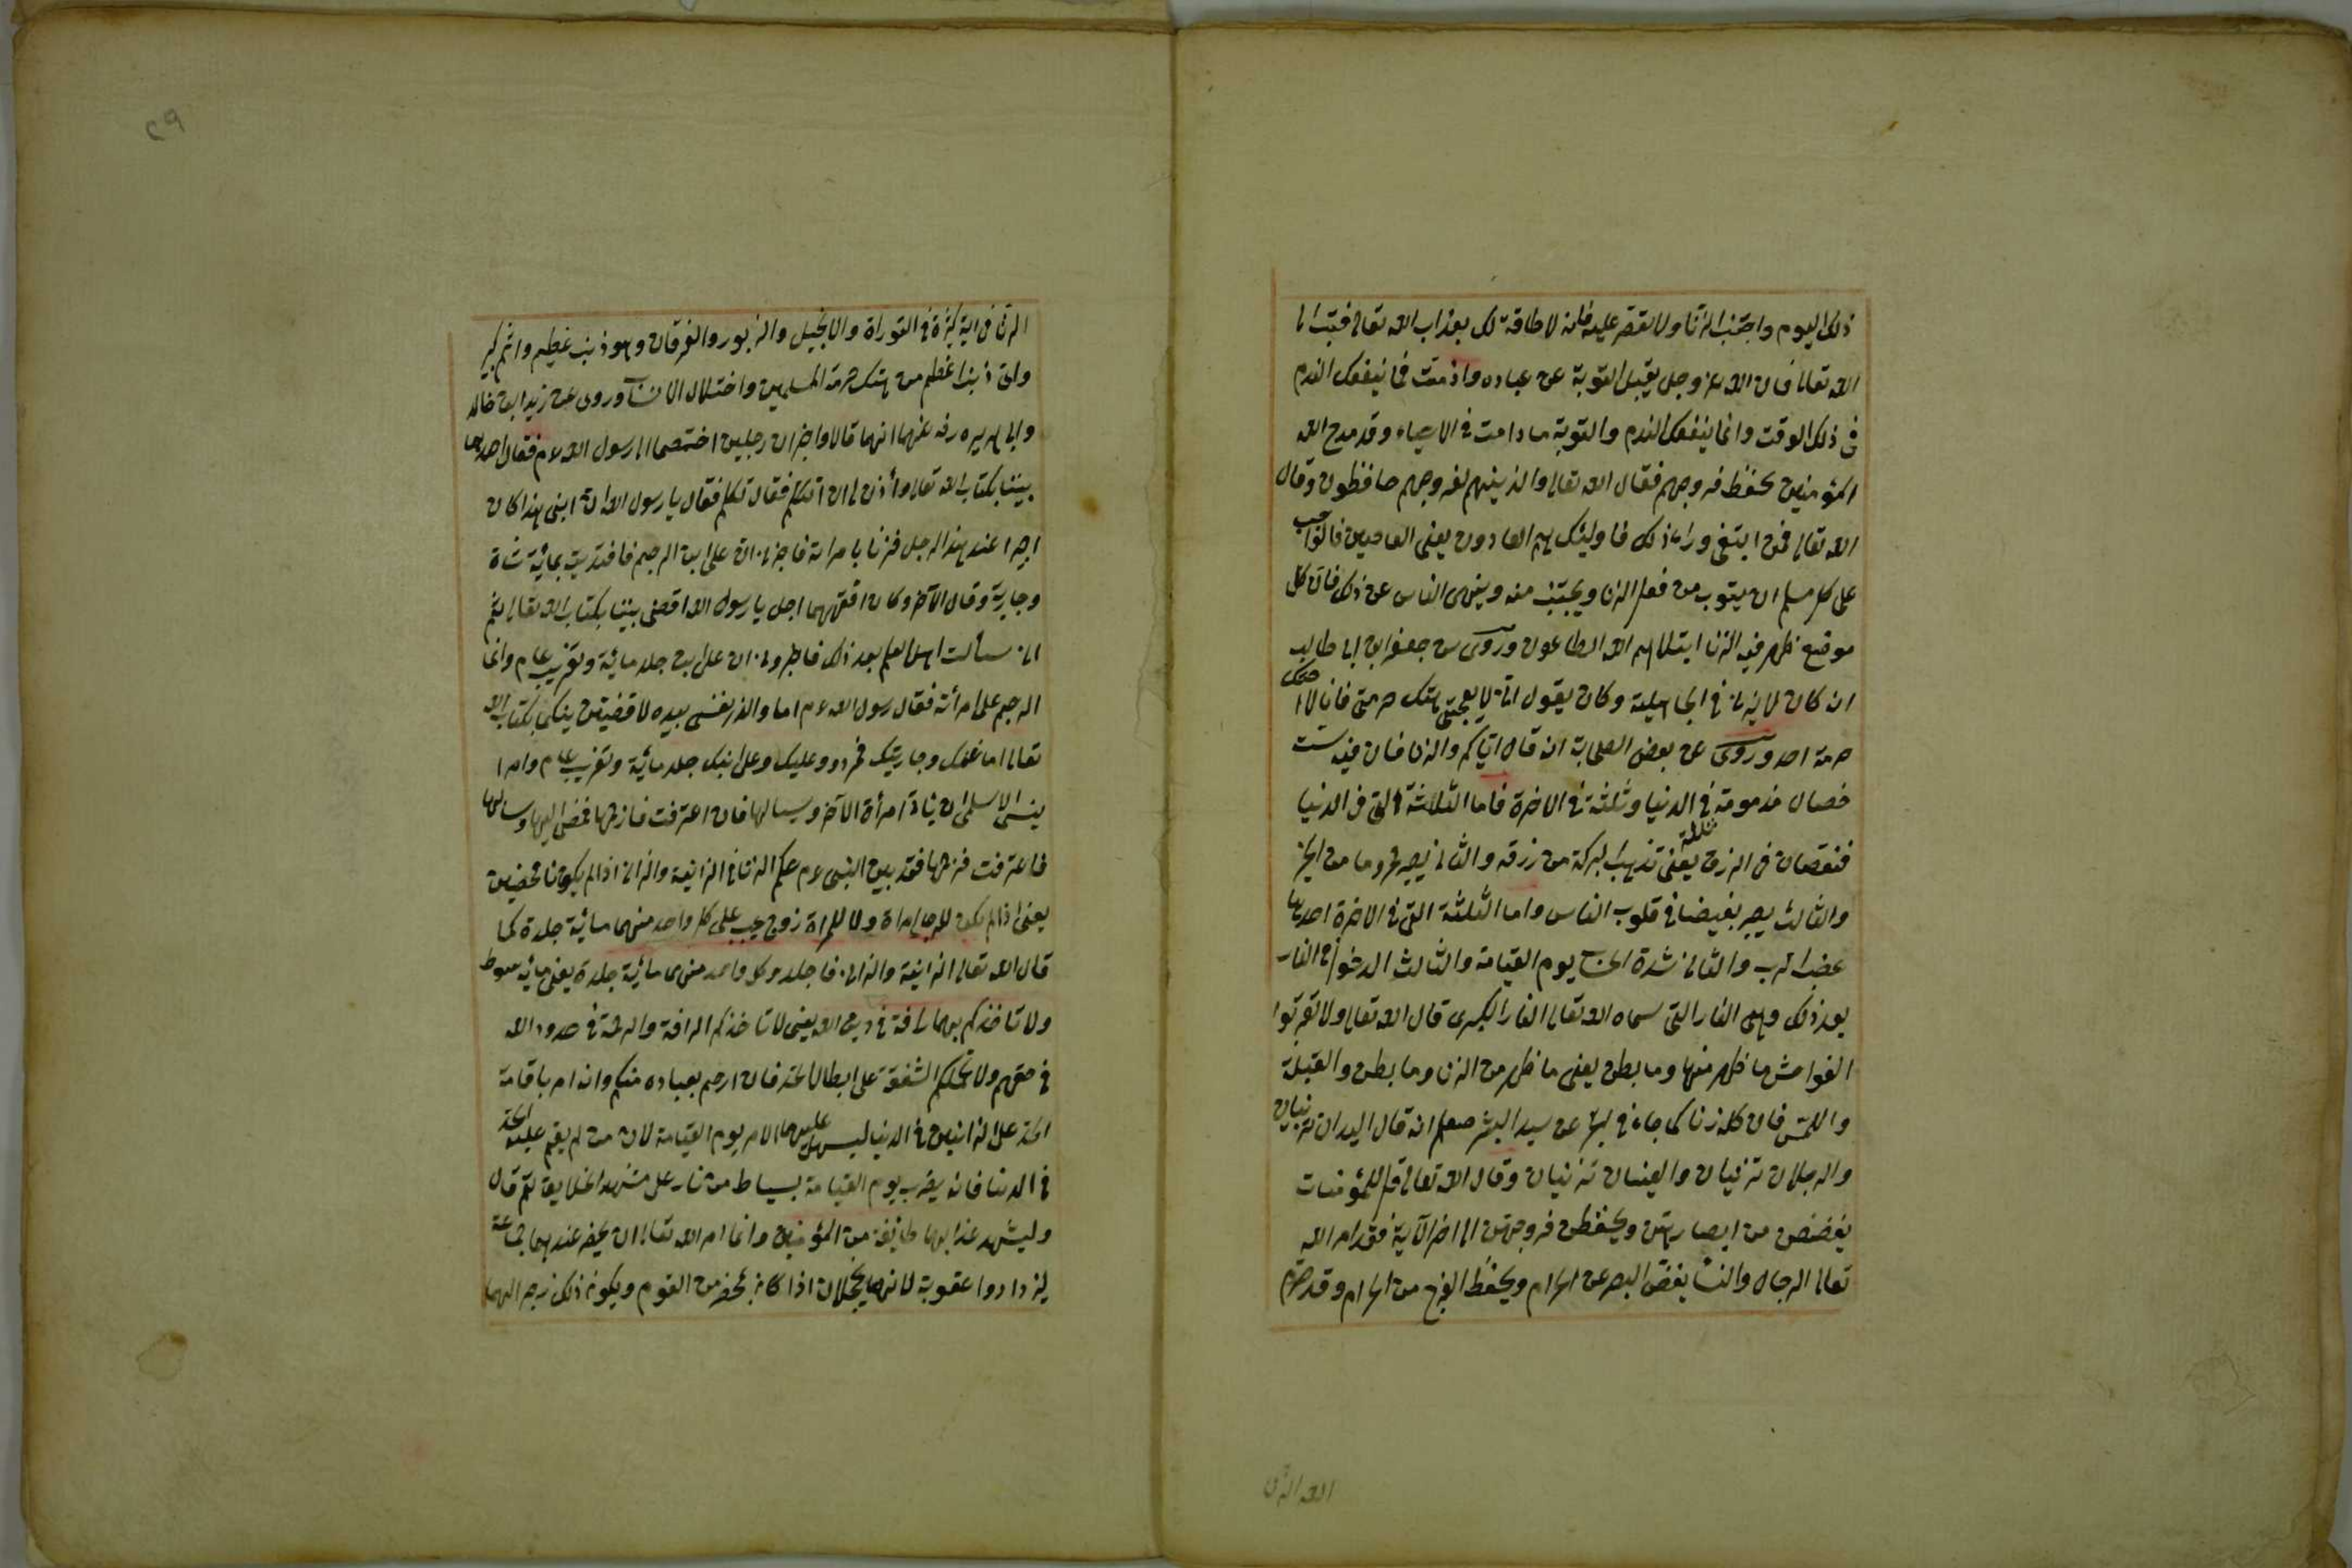 ذلك اليوم واجتنب الزنا ولا تقصر عليه فانه لا طاقة لك بعذاب الله تعالى فتب الى
الله تعالى فان الله عز وجل يقبل التوبة عن عباده واذ مت فما ينفعك الندم
فى ذلك الوقت وانما ينفعك الندم والتوبة ما دامت فى الاحياء وقد مدح الله
المؤمنين بحفظ فروجهم فقال الله تعالى والذينهم لفروجهم حافظون وقال
الله تعالى فمن ابتغى وراء ذلك فاولئك هم العادون يعنى العاصين فالواجب
على كل مسلم ان يتوب من فعل الزنا ويجتنب منه وينهى الناس عن ذلك فان كل
موضع ظهر فيه الزنا ابتلاهم الله الطاعون وروى عن جعفر ابن ابى طالب
انه كان لا يزنى فى الجاهلية وكان يقول انى لا يعجبنى هتك حرمتى فانا لا اهتك
حرمة احد وروى عن بعض الصحابة انه قال اياكم والزنا فان فيه ست
خصال مذمومة فى الدنيا وثلثة فى الاخرة فاما الثلاثة التى فى الدنيا
ثلثة
فنقصان فى الرزق يعنى تذهب البركة من رزقه والثانى يصير محروما من الخير
والثالث يصير بغيضا فى قلوب الناس واما الثلثة التى فى الاخرة احديها
غضب الرب والثانى شدة الحساب يوم القيامة والثالث الدخول فى النار
بعد ذلك وهى النار التى سماه الله تعالى النار الكبرى قال الله تعالى ولا تقربوا
الفواحش ما ظهر منها وما بطن يعنى ما ظهر من الزنا وما بطن والقبلة
واللمس فان كله زنا كما جاء فى الخبر عن سيد البشر صعلم انه قال اليدان تزنيان
والرجلان تزنيان والعينان تزنيان وقال الله تعالى قل للمؤمنات
يغضضن من ابصارهن ويحفظن فروجهن الى اخر الآية فقد امر الله
تعالى الرجال والنساء بغض البصر عن الحرام ويحفظ الفرج من الحرام وقد حرم
الله الزنا
٢٩
الزنا فى اية كثيرة فى التوراة والانجيل والزبور والفرقان وهو ذنب عظيم واثم كبير
واى ذنب اعظم من هتك حرمة المسلمين واختلال الانساب وروى عن زيد ابن خالد
وابى هريره رضه عنهما انهما قالا واخبر ان رجلين اختصما الى رسول الله عم فقال احدهما
بيننا بكتاب الله تعالى وأذن لى ان اتكلم فقال تكلم فقال يا رسول الله ان ابنى هذا كان
اجيرا عند هذا الرجل فزنا بامراته فاخبرنى ان على ابنى الرجم فافتديت بمائة شاة
وجارية وقال الآخر وكان افقههما اجل يا رسول الله اقض بيننا بكتاب الله تعالى ثم
انى سألت اهل العلم بعد ذلك فاخبرونى ان على ابنى جلد مائية وتغريب عام وانما
الرجم على امرأته فقال رسول الله عم اما والذى نفسى بيده لا قضيين بينكما بكتاب الله
تعالى اما غنمك وجاريتك فردود عليك وعلى ابنك جلد مائية وتغريب عام وامر ا
ينس الاسلمى ان ياتى امرأة الآخر ويسالها فان اعترفت فارجمها فمضى اليها وسالها
فاعترفت فرجمها فقد بين النبى عم حكم الزنا فى الزانية والزانى اذا لم يكونا محصنين
يعنى اذا لم يكن للرجل امراة ولا للمراة زوج يجب على كل واحد منهما مائية جلدة كما
قال الله تعالى الزانية والزانى فاجلدو كل واحد منهما مائية جلدة يعنى مائة سوط
ولا تاخذكم بهما رافة فى دين الله يعنى لا تاخذكم الرافة والرحمة فى حدود الله
فى حقهم ولا تحملكم الشفقة على ابطال الحد فان ارحم بعباده منكم وانه امر باقامة
الحد على الزانيين فى الدنيا ليسهل عليهما الامر يوم القيامة لان من لم يقم عليه الحد
فى الدنيا فانه يضرب يوم القيامة بسياط من نار على مشهد الخلايق ثم قال
وليشهد عذابهما طايفة من المؤمنين وانما امر الله تعالى ان يحضر عندهما جماعة
ليزدادوا عقوبة لانهما يخجلان اذا كان بمحضر من القوم ويكون ذلك زجرا لهما